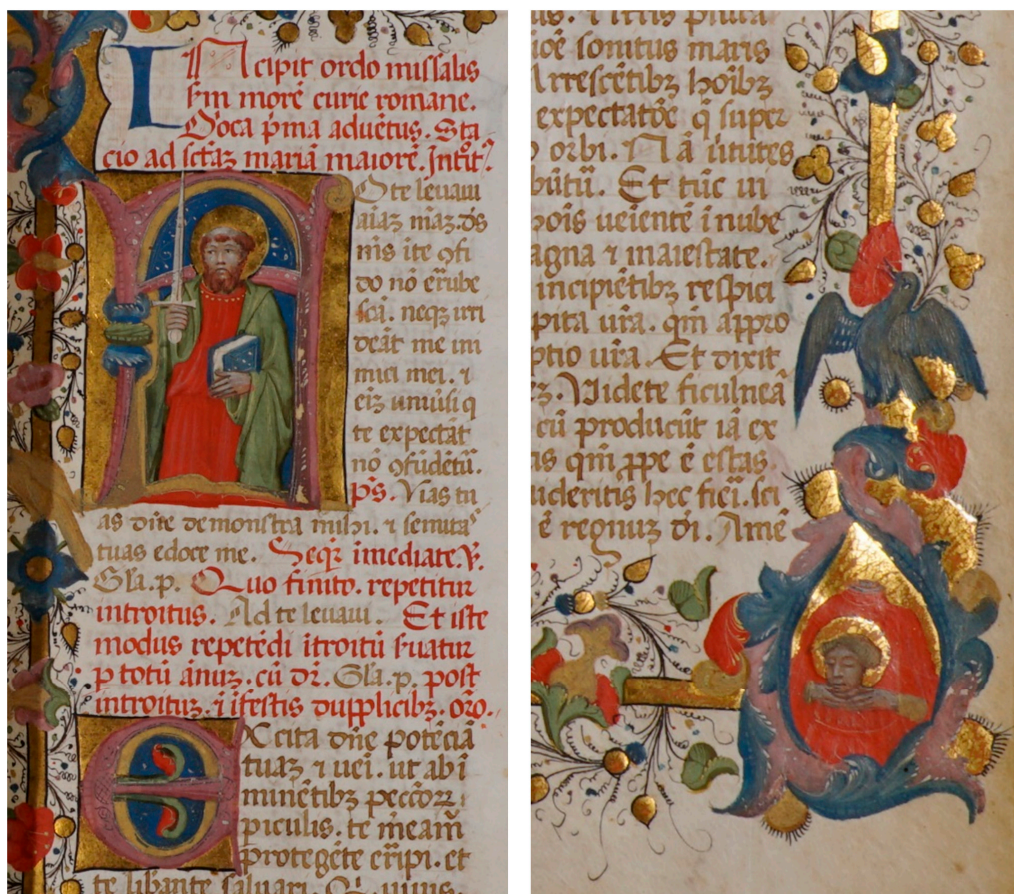 INcipit ordo missalis
s̄m morē curie romane.
D̄oca p̄ma aduētus. Sta
cio ad sc̄taz mariā maiorē. Introit᷑
Ote leuaui
aīaz māz. ds̄
m̄s ite ꝯfi
do nō ērube
scā. neqz irri
deāt me ini
mici mei. ⁊
eīz uniuīsi q
te expectāt
nō ꝯfūdētū.
p̄s. Vias tu
as dn̄e demonstra mihi. ⁊ semitaˢ
tuas edoce me. Seqr̄ īmediate. V̄.
Gl̄a. p. Quo finito. repetitur
introitus. Ad te leuaui. Et iste
modus repetēdi ītroitū s̄uatur
p totū ānuz. cū dr̄. Gl̄a. p. post
introituz. ī ifestis dupplicibz. or̄o.
EXcita dn̄e potēciā
tuaz ⁊ uei. ut ab ī
minētibz pecc̄oꝝ
piculis. te m̄eam̄
protegēte er̄ipi. et
te libante saluari. Qi uiuis.
us. ⁊ illis plura
ioē sonitus maris
Arrescētibz hoībz
expectatōe q̄ super
orbi. Nā uirtutes
būtū. Et tūc ui
hoīs ueientē ī nube
agna ⁊ maiestate.
incipiētibz respici
pita ur̄a. qm̄ appro
ptio ur̄a Et dixit
z. Videte ficulneā
cū producūt iā ex
is qm̄ ꝓpe ē estas.
uideritis hec fiei. sci
ē regnuz dī. Amē